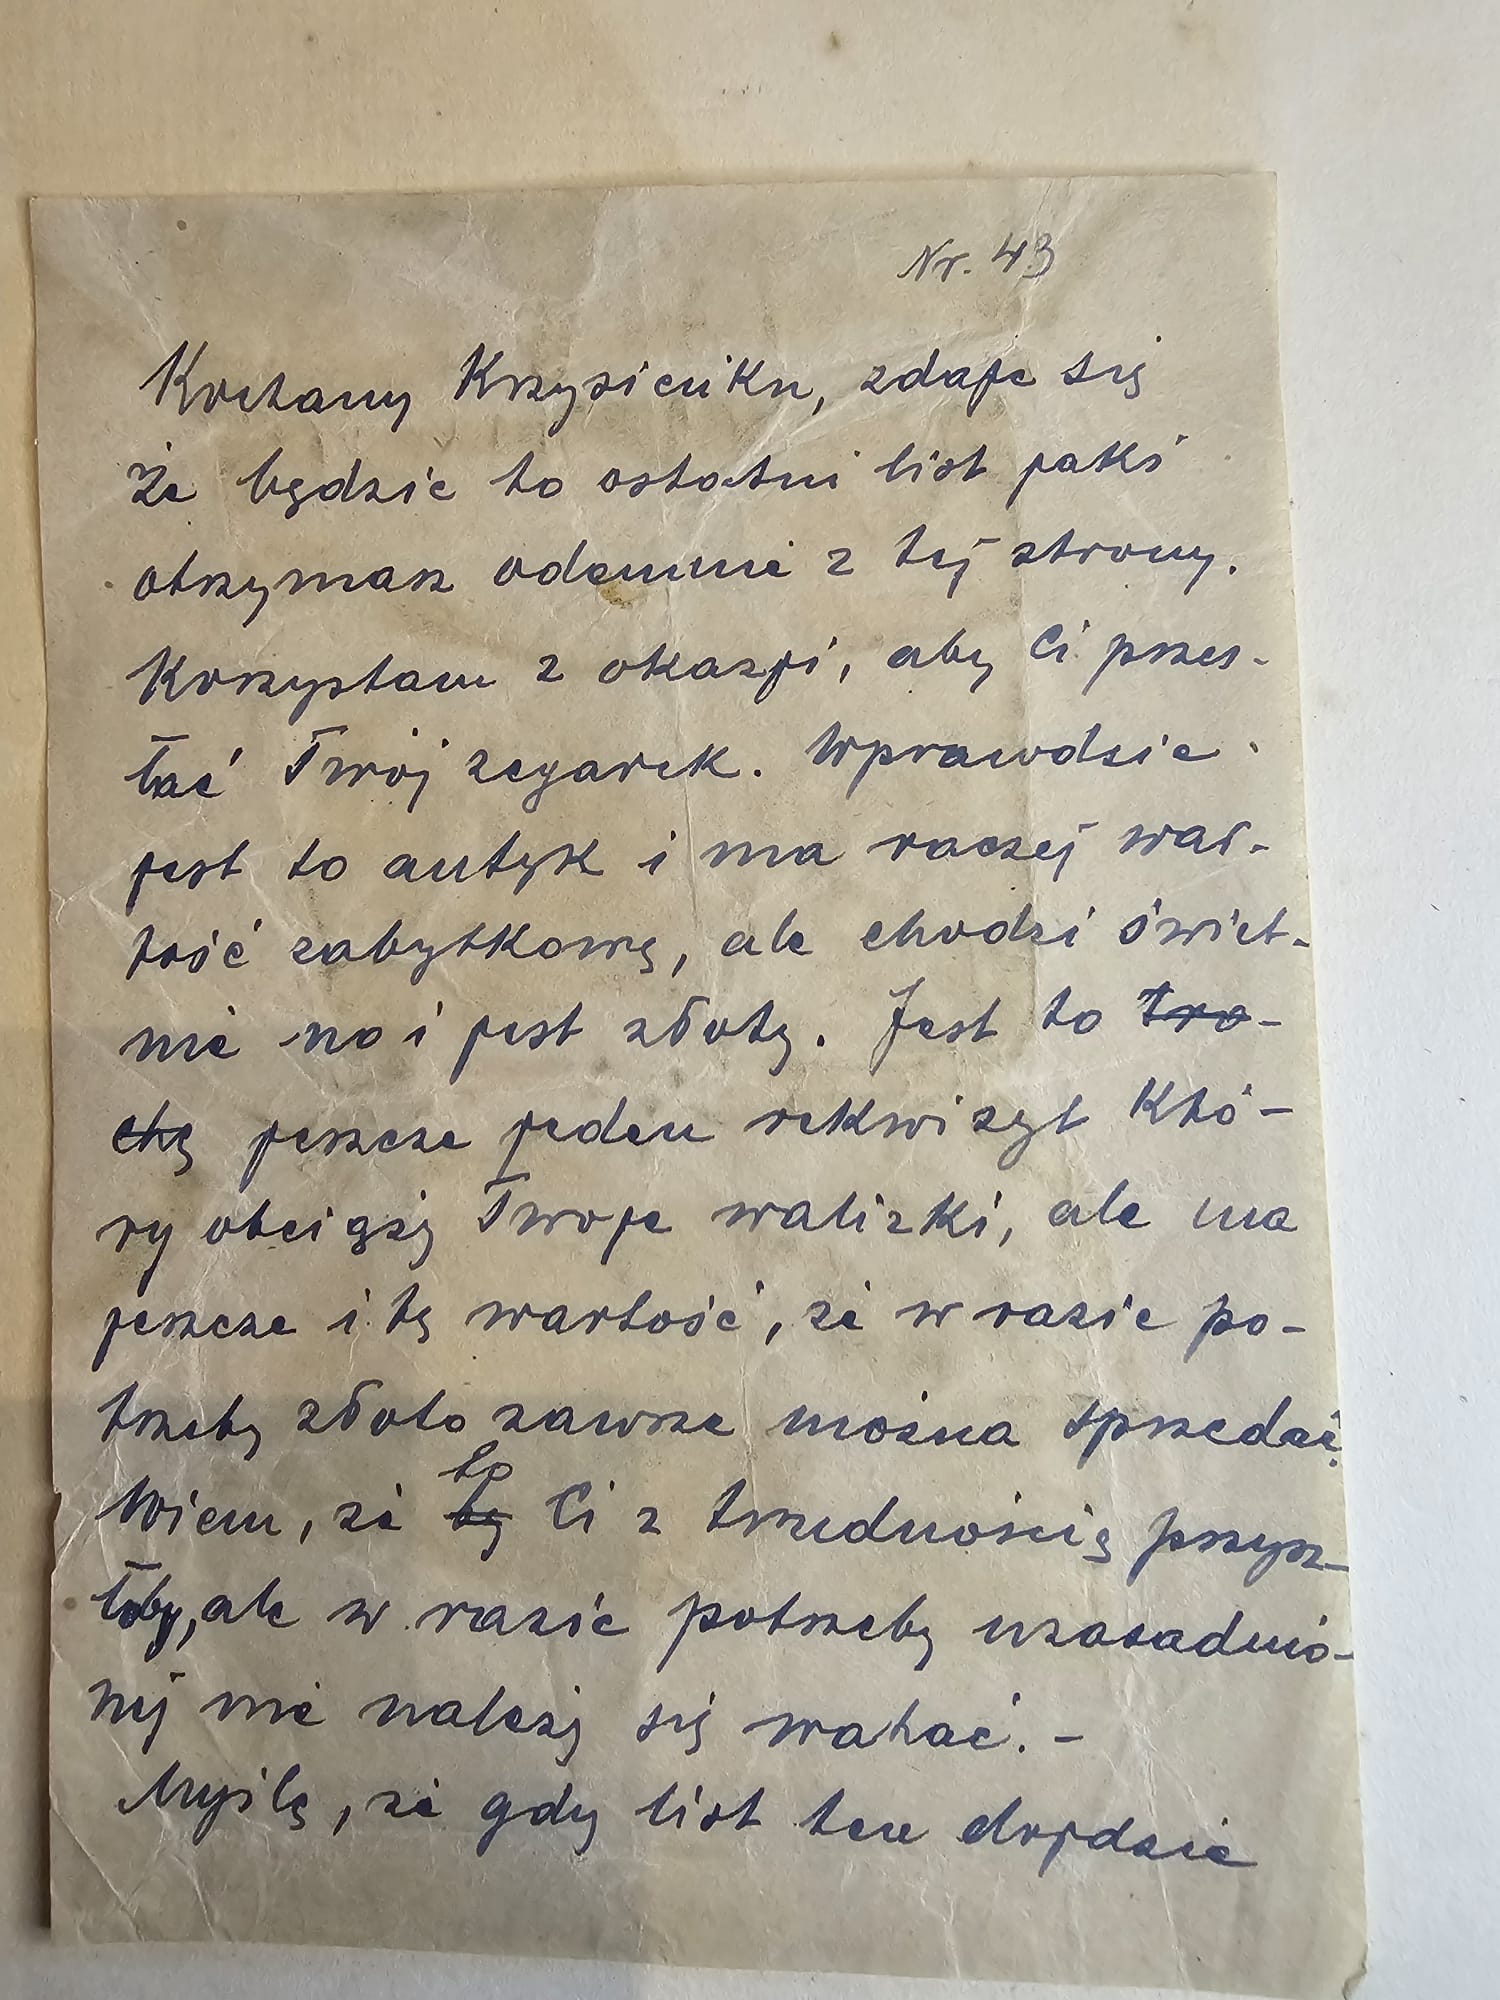 Nr. 43
Kochany Krzysieńku, zdaje się
że będzie to ostatni list jakiś
otrzymasz odemnie z tej strony.
Korzystam z okazji, aby Ci przes-
łać Twój zegarek. Wprawdzie
jest to antyk i ma raczej war-
tość zabytkową, ale chodzi świet-
nie no i jest złoty. Jest to tro-
chę jeszcze jeden rekwizyt któ-
ry obciąży Twoje walizki, ale ma
jeszcze i tę wartość, że w razie po-
trzeby złoto zawsze można sprzedać.
to
Wiem, że by Ci z trudnością przysz-
łoby, ale w razie potrzeby uzasadnio-
nej nie należy się wahać. -
Myślę, że gdy list ten dojdzie